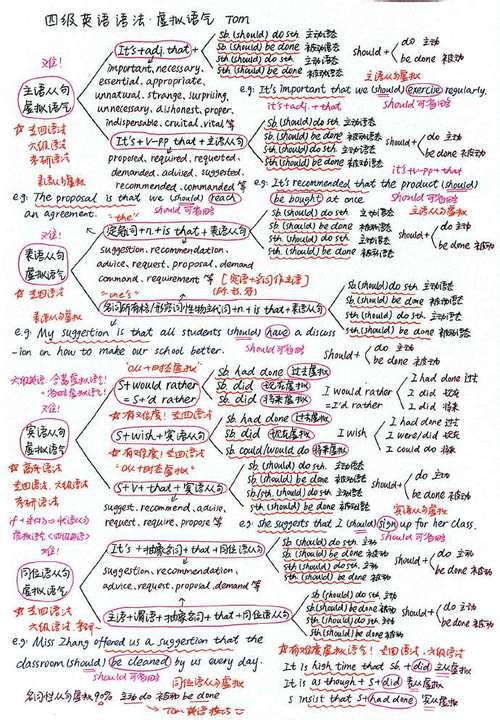 四级英语语法·虚拟语气 Tom
对位!
主语从句
虚拟语气
☆ 四级语法
六级语法
考研语法
It's+adj. that+
important, necessary,
essential, appropriate,
unnatural, strange, surprising,
unnecessary, dishonest, proper,
indispensable, crucial, vital 等
sb (should) do sth 主动语态
sb (should) be done 被动语态
sth (should) do sth 主动语态
sth (should) be done 被动语态
should + do 主动
be done 被动
主语从句虚拟
e.g: It's important that we (should) exercise regularly.
it's+adj.+that should可省略
It's+V-pp that+主语从句
proposed, required, requested,
demanded, advised, suggested,
recommended, commanded 等
sb (should) do sth 主动语态
sb (should) be done 被动语态
sth (should) do sth 主动语态
sth (should) be done 被动语态
should + do 主动
be done 被动
it's+v-pp+that
e.g: It's recommended that the product (should)
be bought at once should可省略
主语从句虚拟
表语从句虚拟
e.g: The proposal is that we (should) reach
an agreement. should可省略
"the"
对位!
表语从句
虚拟语气
☆ 四级语法
定冠词+n+is that+表语从句
suggestion, recommendation,
advice, request, proposal, demand
command, requirement 等
sb (should) do sth 主动语态
sb (should) be done 被动语态
sth (should) do sth 主动语态
sth (should) be done 被动语态
should + do 主动
be done 被动
"one's"
名词所有格/形容词性物主代词+n+is that+表语从句
sb (should) do sth 主动语态
sb (should) be done 被动语态
sth (should) do sth 主动语态
sth (should) be done 被动语态
表语从句虚拟
e.g: My suggestion is that all students (should) have a discuss
-ion on how to make our school better. should可省略
should + do 主动
be done 被动
对位!
宾语从句
虚拟语气
☆ 高考语法
四级语法、六级语法
考研语法
"all+时态虚拟"
S+would rather
= S+'d rather
sb. had done 过去虚拟
sb. did 现在虚拟
sb. did 将来虚拟
I would rather
=I'd rather
I had done 过去
I did 现在
I did 将来
☆ 有难度! 四级语法
S+wish+宾语从句
sb. had done 过去虚拟
sb. did 现在虚拟
sb. could/would do 将来虚拟
I wish
I had done 过去
I were/did 现在
I could do 将来
☆ 有难度! 四级语法
"all+时态虚拟"
S+V+that+宾语从句
suggest, recommend, advise,
request, require, propose 等
sb (should) do sth. 主动语态
sb (should) be done 被动语态
sth (should) do sth 主动语态
sth (should) be done 被动语态
should + do 主动
be done 被动
宾语从句虚拟
e.g: she suggests that I (should) sign up for her class.
should可省略
对位!
同位语从句
虚拟语气
☆ 四级语法
It's+抽象名词+that+同位语从句
suggestion, recommendation,
advice, request, proposal, demand 等
sb (should) do sth. 主动
sb (should) be done 被动
sth (should) do sth 主动
sth (should) be done 被动
should + do 主动
be done 被动
主语+谓语+抽象名词+that+同位语从句
sb (should) do sth 主动
sb (should) be done 被动
sth (should) do sth 主动
sth (should) be done 被动
should + do 主动
be done 被动
e.g: Miss Zhang offered us a suggestion that the
classroom (should) be cleaned by us every day.
should可省略 同位语从句虚拟
名词性从句虚拟90% 主动do 被动be done
☆ 有难度虚拟语气! 四级语法、六级语法
It is high time that sb.+did
It is as though S+did
S insist that S+had done